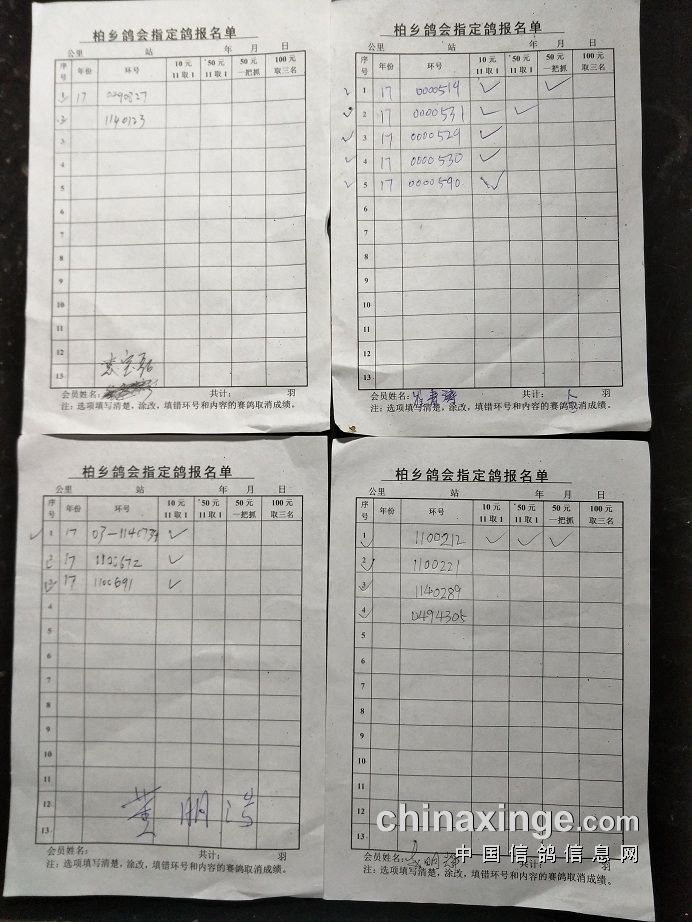 柏乡鸽会指定鸽报名单
公里 站 年 月 日
序号 年份 环号 10元 11取1 50元 11取1 50元 一把抓 100元 取三名
1 17
2 1140123
3
4
5
6
7
8
9
10
11
12
13
会员姓名: 共计: 羽
注:选项填写清楚,涂改,填错环号和内容的赛鸽取消成绩。
柏乡鸽会指定鸽报名单
公里 站 年 月 日
序号 年份 环号 10元 11取1 50元 11取1 50元 一把抓 100元 取三名
✓ 1 17 0000519 ✓ ✓
✓ 2 17 0000531 ✓ ✓
✓ 3 17 0000529 ✓
✓ 4 17 0000530 ✓
✓ 5 17 0000590 ✓
6
7
8
9
10
11
12
13
会员姓名: 共计: 羽
注:选项填写清楚,涂改,填错环号和内容的赛鸽取消成绩。
柏乡鸽会指定鸽报名单
公里 站 年 月 日
序号 年份 环号 10元 11取1 50元 11取1 50元 一把抓 100元 取三名
✓ 1 17 ✓
2 17 1100672 ✓
3 17 1100691 ✓
4
5
6
7
8
9
10
11
12
13
董明浩
会员姓名: 共计: 羽
注:选项填写清楚,涂改,填错环号和内容的赛鸽取消成绩。
柏乡鸽会指定鸽报名单
公里 站 年 月 日
序号 年份 环号 10元 11取1 50元 11取1 50元 一把抓 100元 取三名
1 1100212 ✓ ✓ ✓
2 1100221
3 1140289
4 0494305
5
6
7
8
9
10
11
12
13
会员姓名: 共计: 羽
注:选项填写清楚,涂改,填错环号和内容的赛鸽取消成绩。
chinaxinge.com
中国信鸽信息网